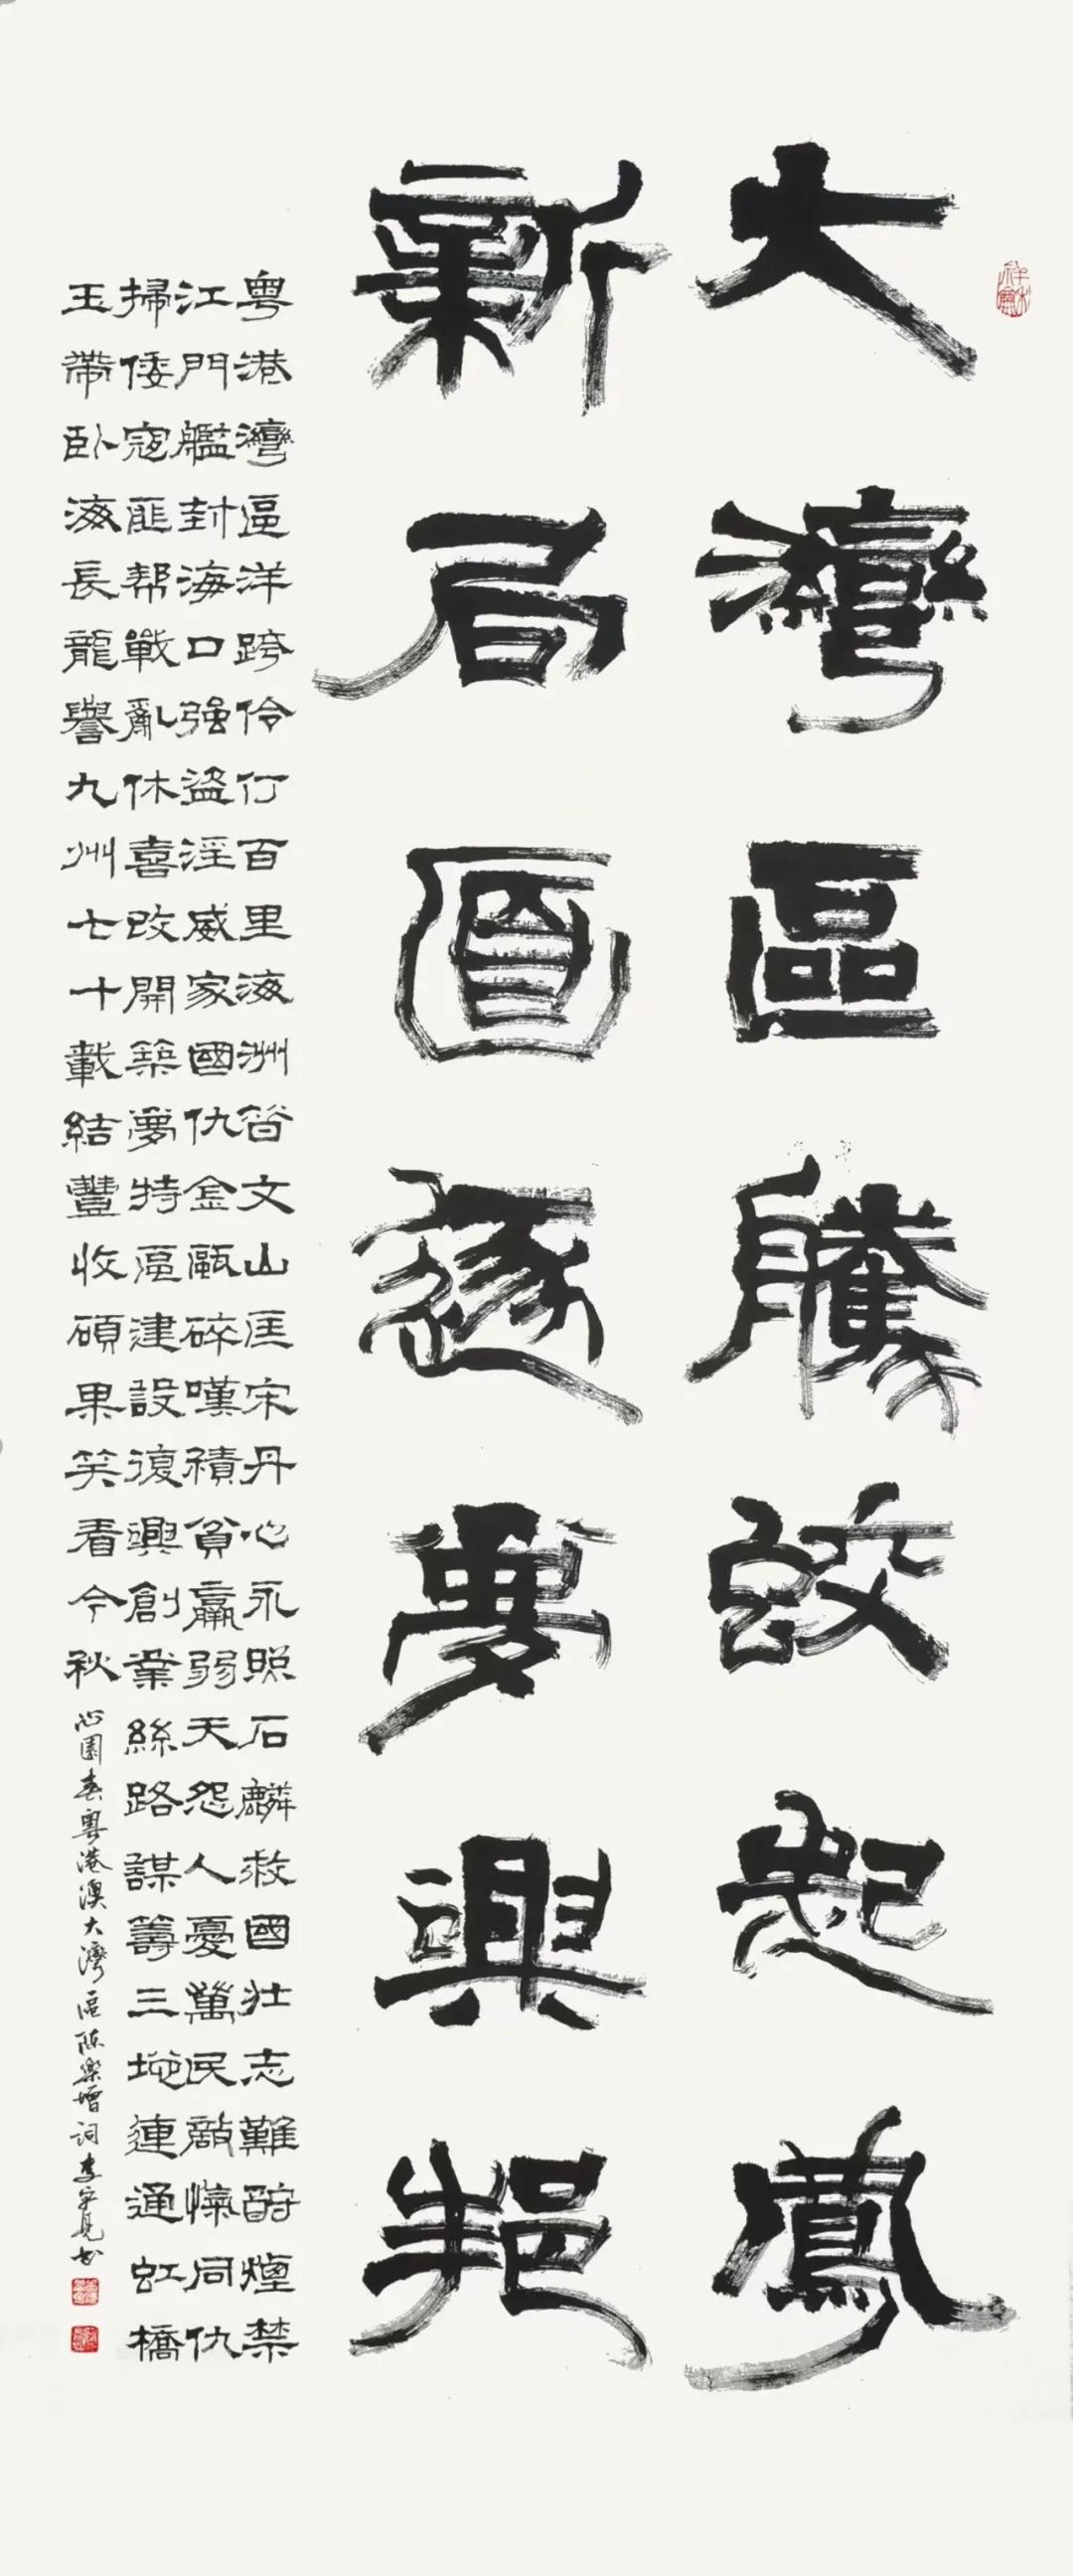 大灣區騰蛟起鳳
新局圓逐夢興邦
粵港灣區洋跨伶仃百里海洲昔文山匡宋丹心永照石麟救國壯志難酬煙禁
江門艦封海口強盜淫威家國仇金甌碎嘆積貧羸弱天怨人憂萬民敵愾同仇
掃倭寇匪幫戰亂休喜改開築夢特區建設復興創業絲路謀籌三地連通虹橋
玉帶臥海長龍譽九州七十載結豐收碩果笑看今秋
沁園春粵港澳大灣區陳樂增詞李安見書